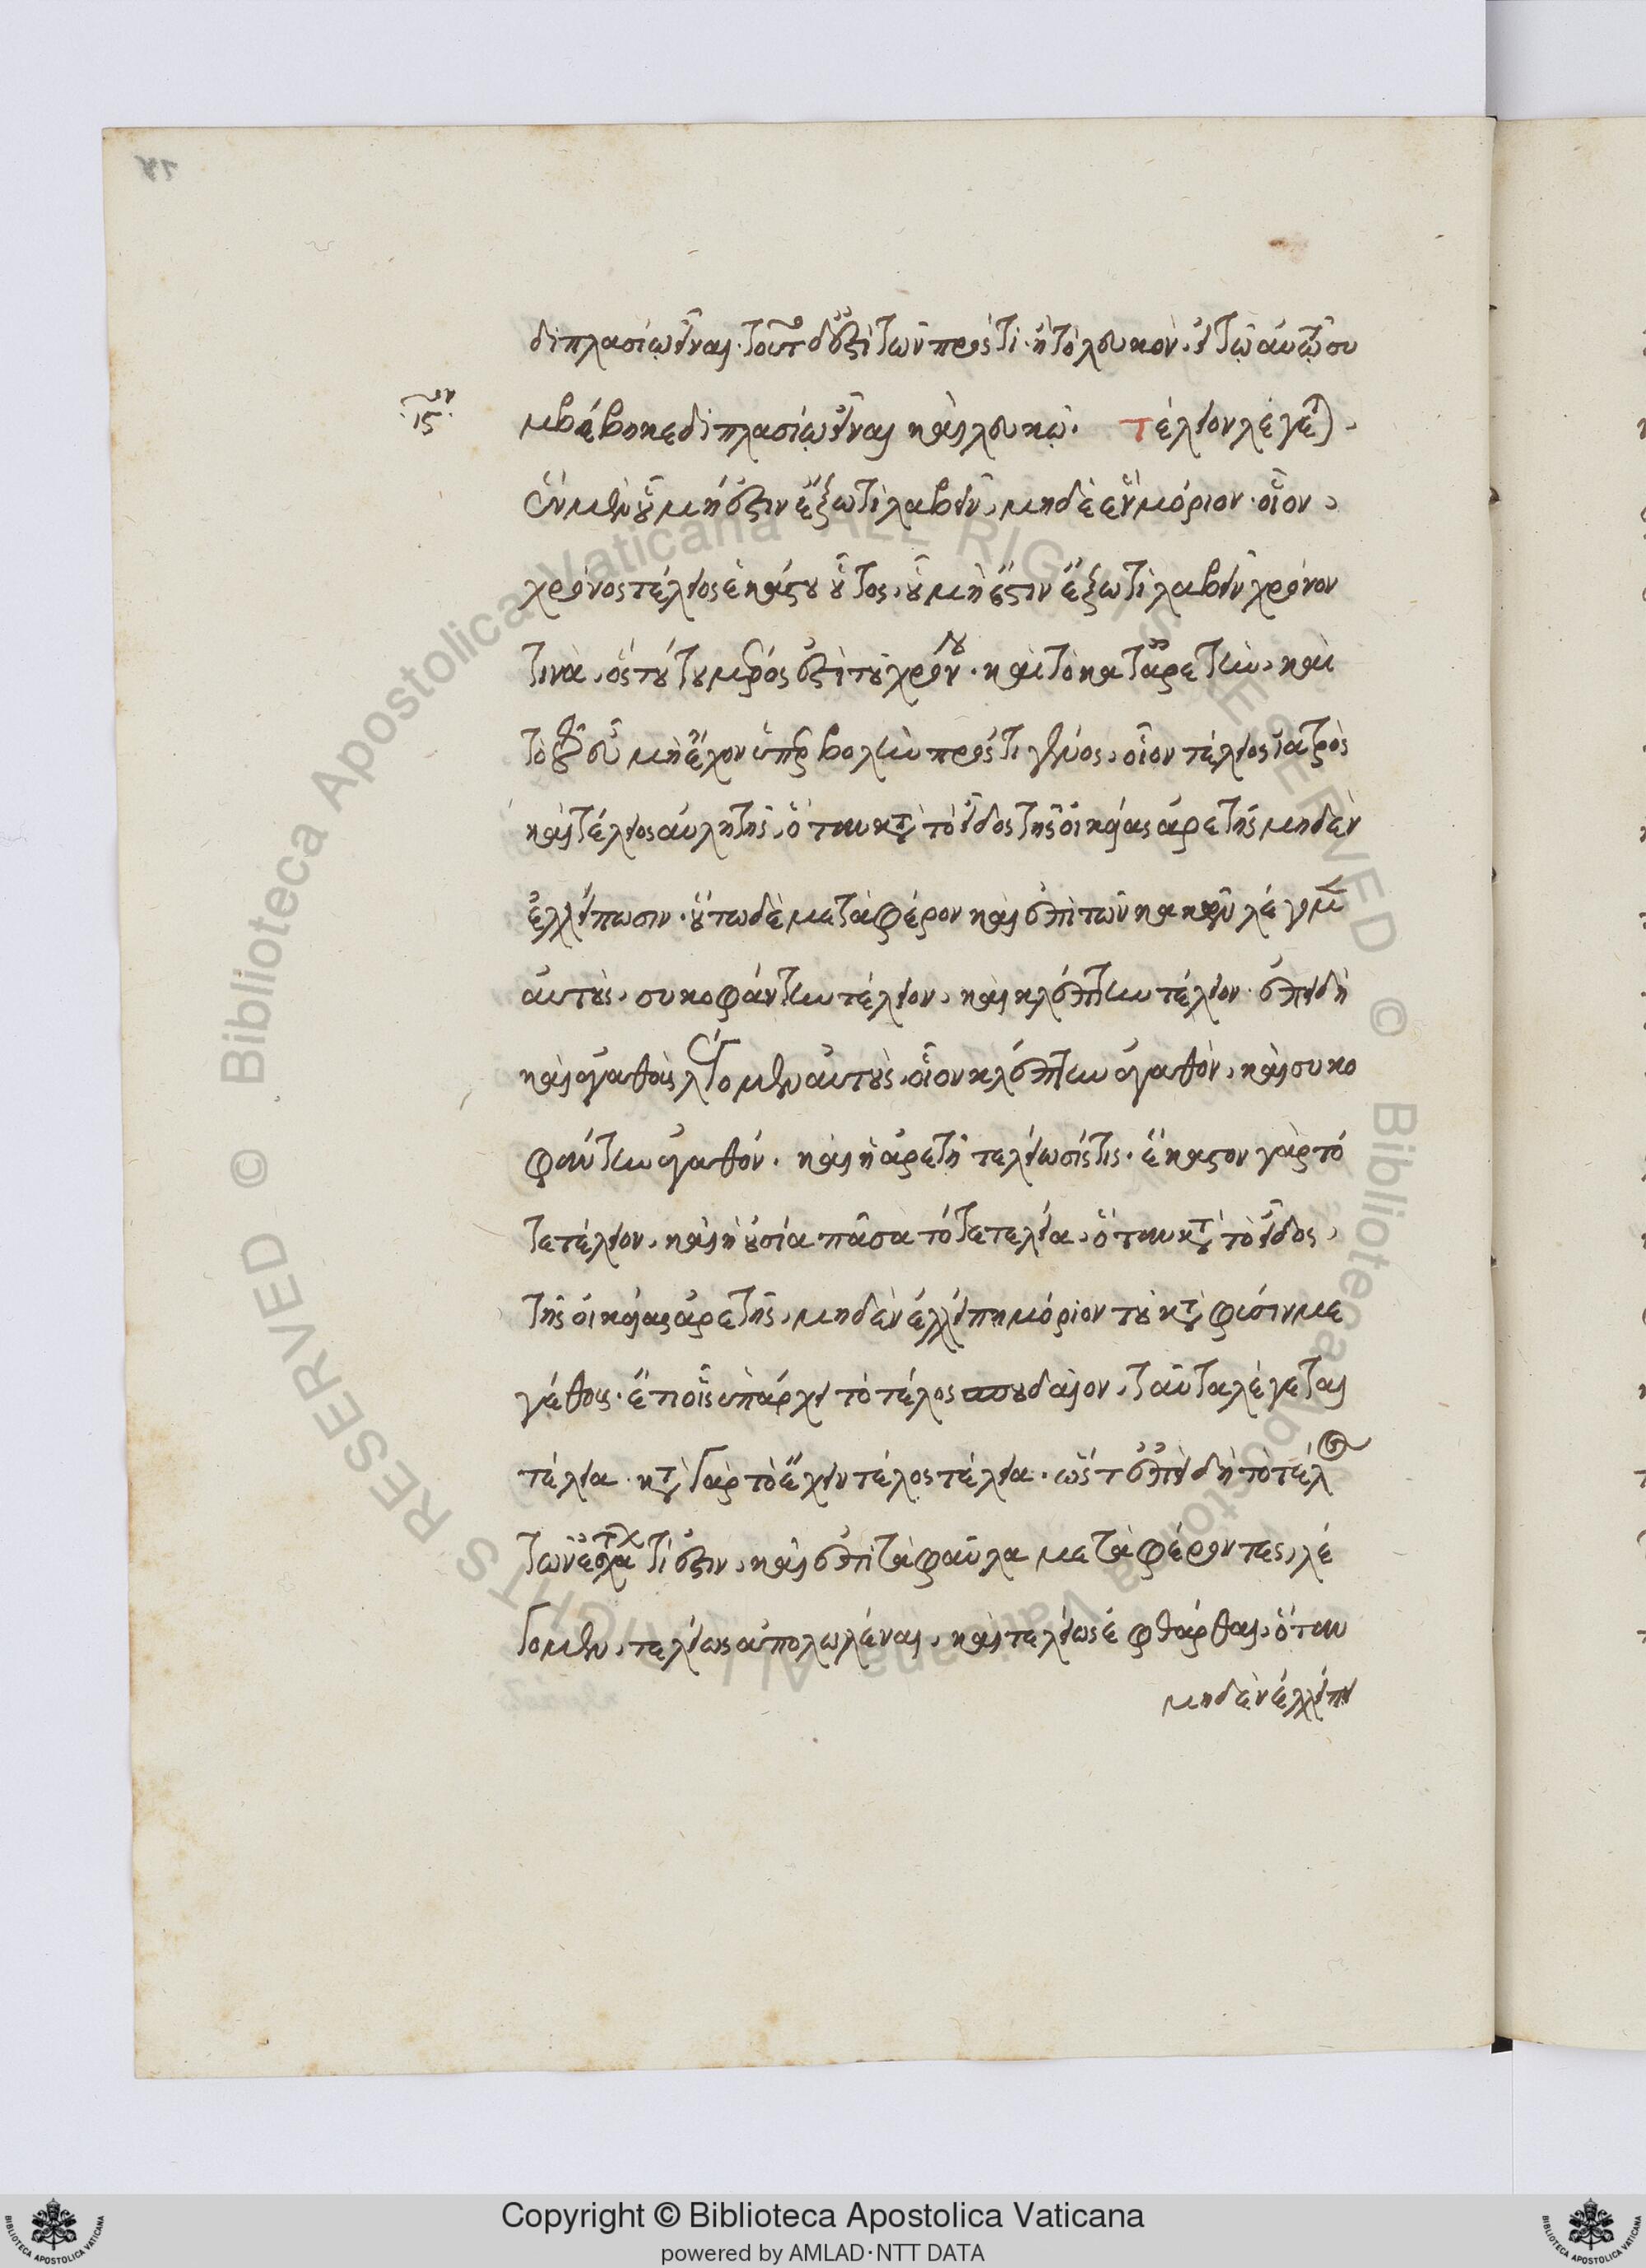 διπλασίῳ εἶναι· τοῦτο δ' ἐστὶ τῶν πρός τι· ἢ τὸ λευκὸν, εἰ τῷ αὐτῷ συ
·ις^ον·
μβέβηκε διπλασίῳ εἶναι καὶ λευκῷ. τέλειον λέγεται,
ἓν μὲν οὗ μή ἐστιν ἔξω τι λαβεῖν, μηδὲ ἓν μόριον· οἷον,
χρόνος τέλειος ἑκάστου οὗτος, οὗ μὴ ἔστιν ἔξω τι λαβεῖν χρόνον
τινὰ, ὃς τούτου μέρος ἐστὶ τοῦ χρόνου· καὶ τὸ κατ' ἀρετὴν, καὶ
τὸ εὖ οὗ μὴ ἔχον ὑπερβολὴν πρός τι γένος, οἷον τέλειος ἰατρὸς
καὶ τέλειος αὐλητὴς, ὅταν κατὰ τὸ εἶδος τῆς οἰκείας ἀρετῆς μηδὲν
ἐλλείπωσιν· οὕτω δὲ μεταφέρον καὶ ἐπὶ τῶν κακῶν λέγομεν
αὐτοὺς, συκοφάντην τέλειον, καὶ κλέπτην τέλειον· ἐπειδὴ
καὶ ἀγαθοὺς λέγομεν αὐτοὺς, οἷον κλέπτην ἀγαθὸν, καὶ συκο
φάντην ἀγαθόν. καὶ ἡ ἀρετὴ τελείωσίς τις· ἕκαστον γὰρ τό
τε τέλειον, καὶ ἡ οὐσία πᾶσα τότε τελεία, ὅταν κατὰ τὸ εἶδος,
τῆς οἰκείας ἀρετῆς, μηδὲν ἐλλείπῃ μόριον τοῦ κατὰ φύσιν με
γέθους· ἔτι οἷς ὑπάρχει τὸ τέλος σπουδαῖον, ταῦτα λέγεται
τέλεια· κατὰ γὰρ τὸ ἔχειν τέλος τέλεια· ὥστ' ἐπειδὴ τὸ τέλος
τῶν ἐσχάτων τί ἐστιν, καὶ ἐπὶ τὰ φαῦλα μεταφέροντες, λέ
γομεν, τελείως ἀπολωλέναι, καὶ τελείως ἐφθάρθαι, ὅταν
μηδὲν ἐλλείπει
Copyright © Biblioteca Apostolica Vaticana
powered by AMLAD·NTT DATA